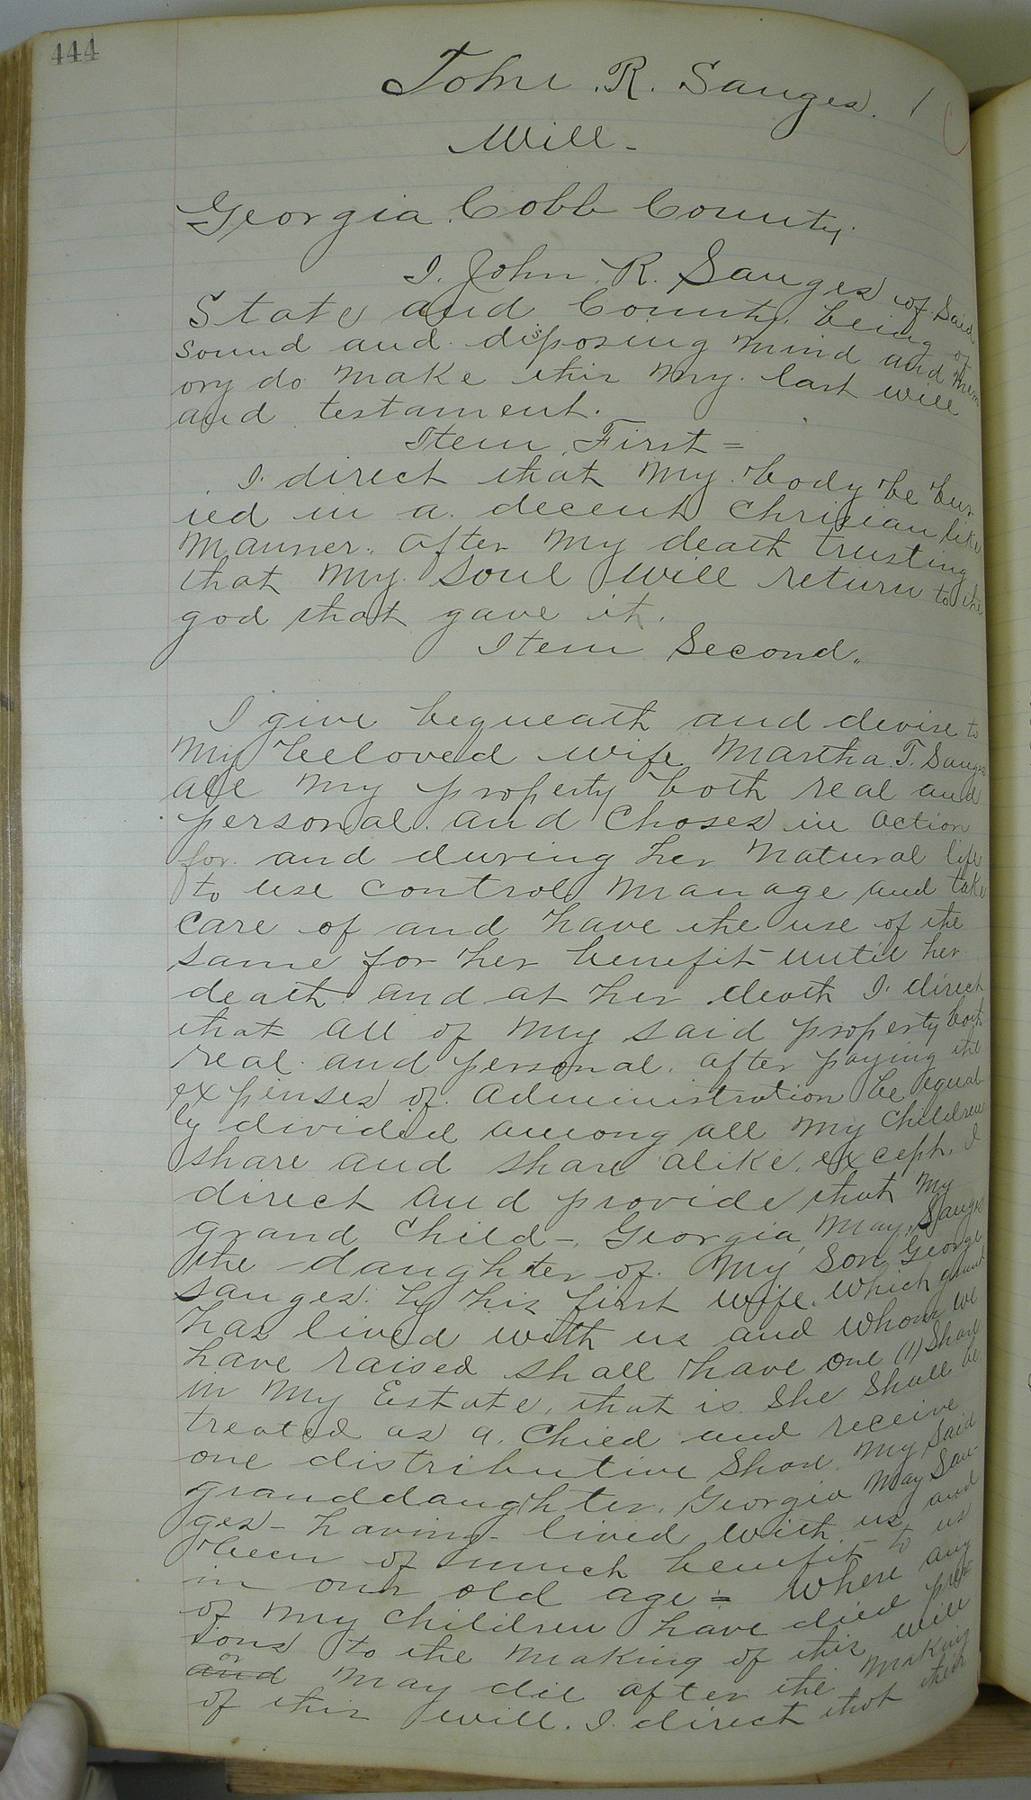 444
John R. Sanges. /
Will -
Georgia Cobb County.
I. John. R. Sanges of Said
State and County being of
sound and disposing mind and Mem
ory do make this my last will
and testament.
Item First =
I. direct that my body be bur
ied in a decent Chrisian like
Manner. after my death trusting
that my soul will return to the
god that gave it.
Item Second.
I give bequeath and devise to
my beeloved wife Martha. T. Sanges
all my property both real and
personal. and Choses in action
for and during her natural life
to use control manage and take
care of and have the use of the
same for her benefit until her
death and at her death I. direct
that all of my said property both
real and personal. after paying the
expenses of administration be equal
ly divided among all my Children
share and share alike. except. I
direct and provide that my
grand Child -. Georgia May Sanges
the daughter of my Son George
Sanges by his first wife. which grand
has lived with us and whom we
have raised shall have one (1) Share
in my Estate, that is She shall be
treated as a. Child and receive
one distributive Share My said
granddaughter. Georgia May San-
ges - having lived with us and
been of much benefit to us
in our old age = Where any
of my children have died pre
ious to the making of this will
or
and may die after the making
of this will. I. direct that their